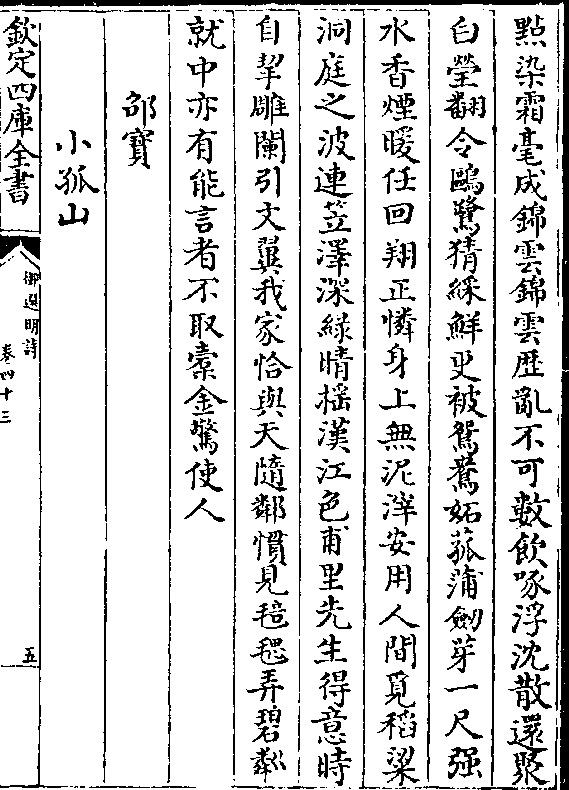 點染霜毫成錦雲錦雲歴亂不可數飲啄浮沈散還聚
白瑩翻令鷗鷺猜綵鮮更被鴛鴦妬菰蒲劒芽一尺强
水香煙暖任回翔正憐身上無泥滓安用人間覓稻粱
洞庭之波連笠澤深緑晴揺漢江色甫里先生得意時
自挐雕闌引文翼我家恰與天隨鄰慣見毰毸弄碧粼
就中亦有能言者不取橐金驚使人
邵寳
小孤山
欽定四庫全書
御選明詩
卷四十三
五